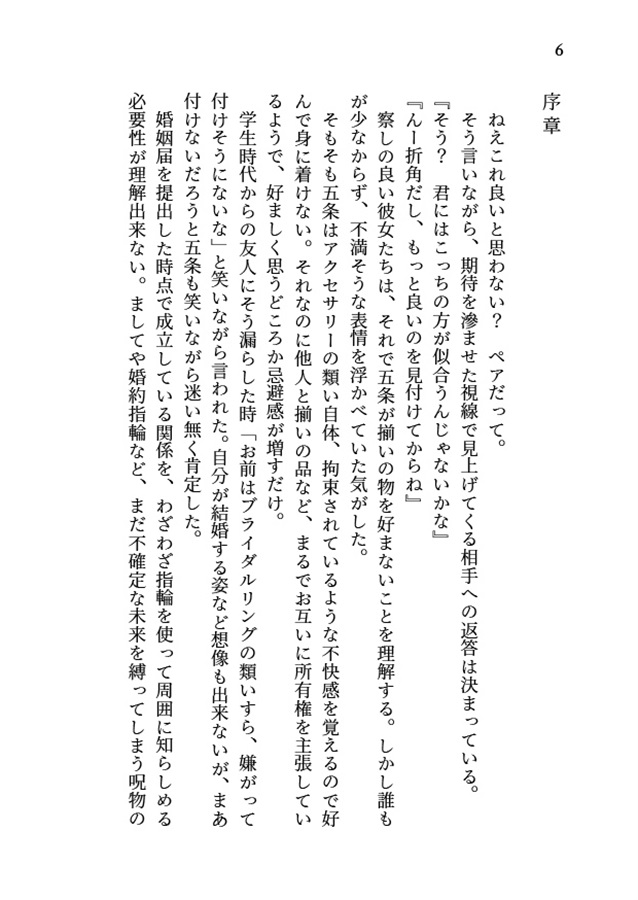 6
序章
ねえこれ良いと思わない？　ペアだって。
そう言いながら、期待を滲ませた視線で見上げてくる相手への返答は決まっている。
『そう？　君にはこっちの方が似合うんじゃないかな』
『んー折角だし、もっと良いのを見付けてからね』
察しの良い彼女たちは、それで五条が揃いの物を好まないことを理解する。しかし誰も
が少なからず、不満そうな表情を浮かべていた気がした。
そもそも五条はアクセサリーの類い自体、拘束されているような不快感を覚えるので好
んで身に着けない。それなのに他人と揃いの品など、まるでお互いに所有権を主張してい
るようで、好ましく思うどころか忌避感が増すだけ。
学生時代からの友人にそう漏らした時「お前はブライダルリングの類いすら、嫌がって
付けそうにないな」と笑いながら言われた。自分が結婚する姿など想像も出来ないが、まあ
付けないだろうと五条も笑いながら迷い無く肯定した。
婚姻届を提出した時点で成立している関係を、わざわざ指輪を使って周囲に知らしめる
必要性が理解出来ない。ましてや婚約指輪など、まだ不確定な未来を縛ってしまう呪物の